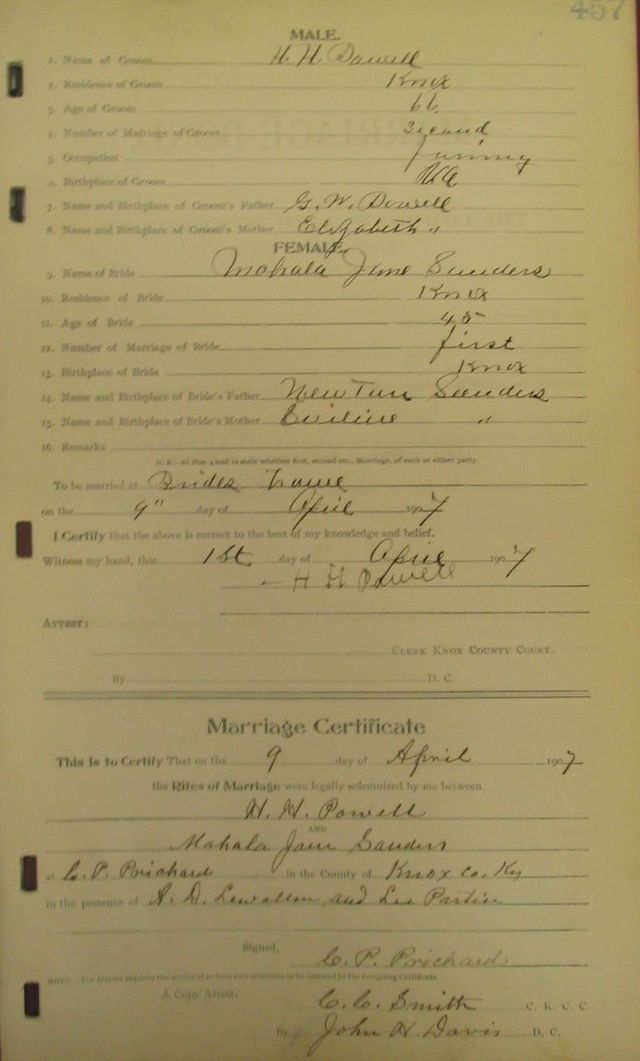 457
MALE.
1. Name of Groom H. H. Powell
2. Residence of Groom Knox
3. Age of Groom 66
4. Number of Marriage of Groom Second
5. Occupation Farming
6. Birthplace of Groom Va.
7. Name and Birthplace of Groom's Father G. W. Powell
8. Name and Birthplace of Groom's Mother Elizabeth "
FEMALE.
9. Name of Bride Mahala Jane Saunders
10. Residence of Bride Knox
11. Age of Bride 45
12. Number of Marriage of Bride first
13. Birthplace of Bride Knox
14. Name and Birthplace of Bride's Father Newton Saunders
15. Name and Birthplace of Bride's Mother Eviline "
16. Remarks
N. B.—At Nos. 4 and 12 state whether first, second etc., Marriage, of each or either party.
To be married at Brides home
on the 9" day of April 1907
I Certify that the above is correct to the best of my knowledge and belief.
Witness my hand, this 1st day of April 1907
H H Powell
ATTEST:
CLERK KNOX COUNTY COURT.
By D. C.
Marriage Certificate
This is to Certify That on the 9 day of April 1907
the Rites of Marriage were legally solemnized by me between
H. H. Powell
AND
Mahala Jane Sanders
at C. P. Prichard in the County of Knox Co. Ky
in the presence of A. D. Lewallen and Lee Partin
Signed, C. P. Prichard
NOTE: The Statute requires the names of at least two witnesses to be inserted in the foregoing Certificate.
A Copy Attest: C. C. Smith C. K. C. C.
By John H. Davis D. C.